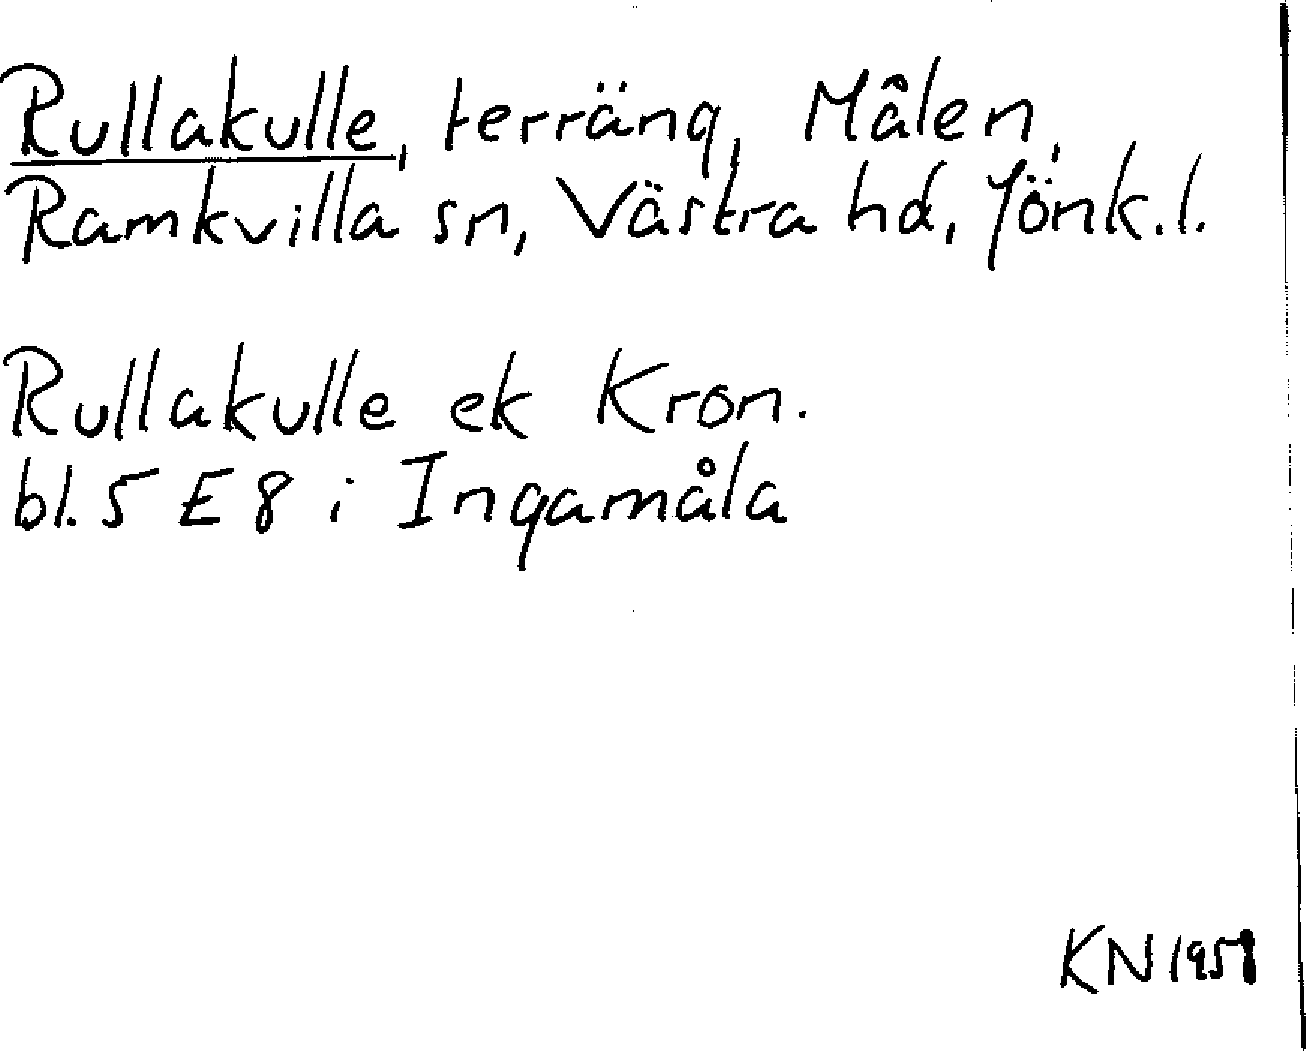 Rullakulle, terräng, Målen,
Ramkvilla sn, Västra hd, Jönk.l.
Rullakulle ek Kron.
bl. 5 E 8 i Ingamåla
KN